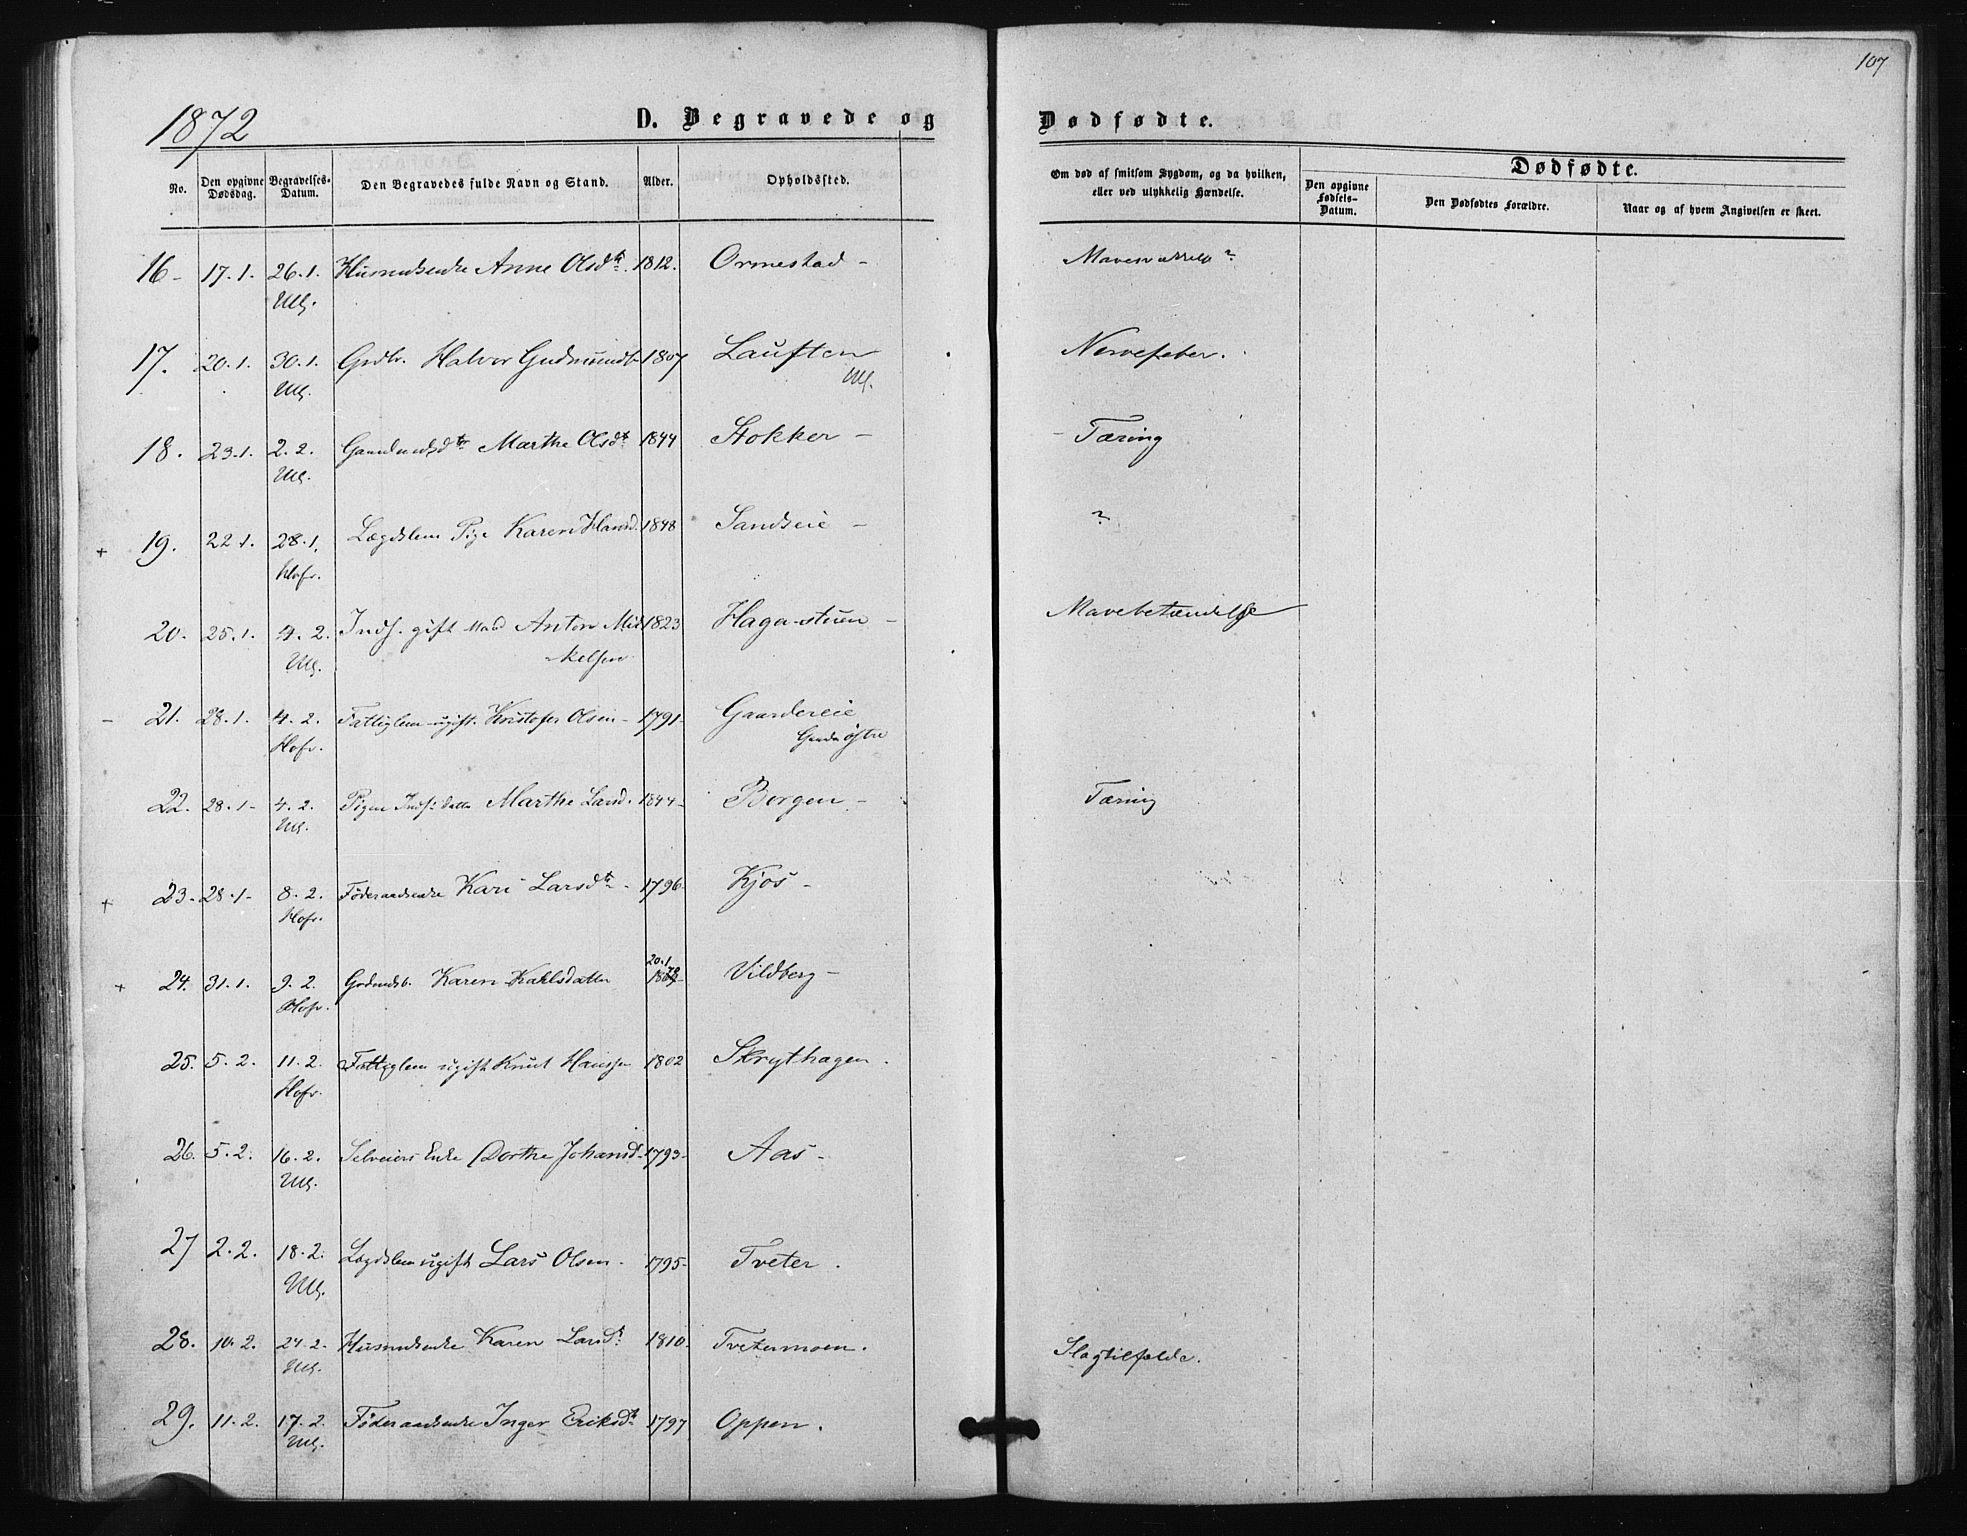 107
1872
D. Begravede og
Dødfødte.
No.
Den opgivne Dødsdag.
Begravelses-Datum.
Den Begravedes fulde Navn og Stand.
Alder.
Opholdssted.
Om død af smitsom Sygdom, og da hvilken, eller ved ulykkelig Hændelse.
Dødfødte.
Den opgivne Fødsels-Datum.
Den Dødfødtes Forældre.
Naar og af hvem Angivelsen er skeet.
16- 17.1. 26.1. Husmdsenke Anne Olsdtr. 1812. Ormestad-
Ull.
17. 20.1. 30.1. Grdbr. Halvor Gudmunds 1807 Lauften Nervefeber.
Ull. Ull.
18. 23.1. 2.2. Gaardmdsdtr Marthe Olsdt. 1844 Stokker- Tæring
Ull.
+ 19. 22.1. 28.1. Lægdslem Pige Karen Hansd. 1848 Sandseie- ?
Hofv.
20. 25.1. 4.2. Inds. gift Mand Anton Mik 1823 Hagastuen- Mavebetændelse
Ull. -kelsen
- 21. 28.1. 4.2. Fattiglem ugift. Kristofer Olsen- 1791- Gaardereie
Hofv. østre
22. 28.1- 4.2. Pigen Inds: datter Marthe Larsd. 1844- Borgen- Tæring
Ull.
+ 23- 28.1- 8.2. Føderaadsenke Kari Larsdtr- 1796- Kjos-
Hofv.
20.1
+ 24. 31.1. 9.2. Karen Kahlsdatter Vildberg-
Hofv.
25. 5.2. 11.2. Fattiglem ugift Knut Hanssen 1802 Skrythagen.
Hofv.
26. 5.2. 16.2. Selveiers Enke Dorthe Johansd- 1793- Aas-
Ull.
27 2.2. 18.2. Lægdslem ugift Lars Olsen. 1795- Tveter.
Ull.
28. 10.2. 24.2. Husmdsenke Karen Larsdt. 1810. Tvetermoen. Slagtilfælde.
Ull.
29. 11.2. 17.2. Føderaadsenke Inger Eriksdt. 1797 Oppen.
Ull.